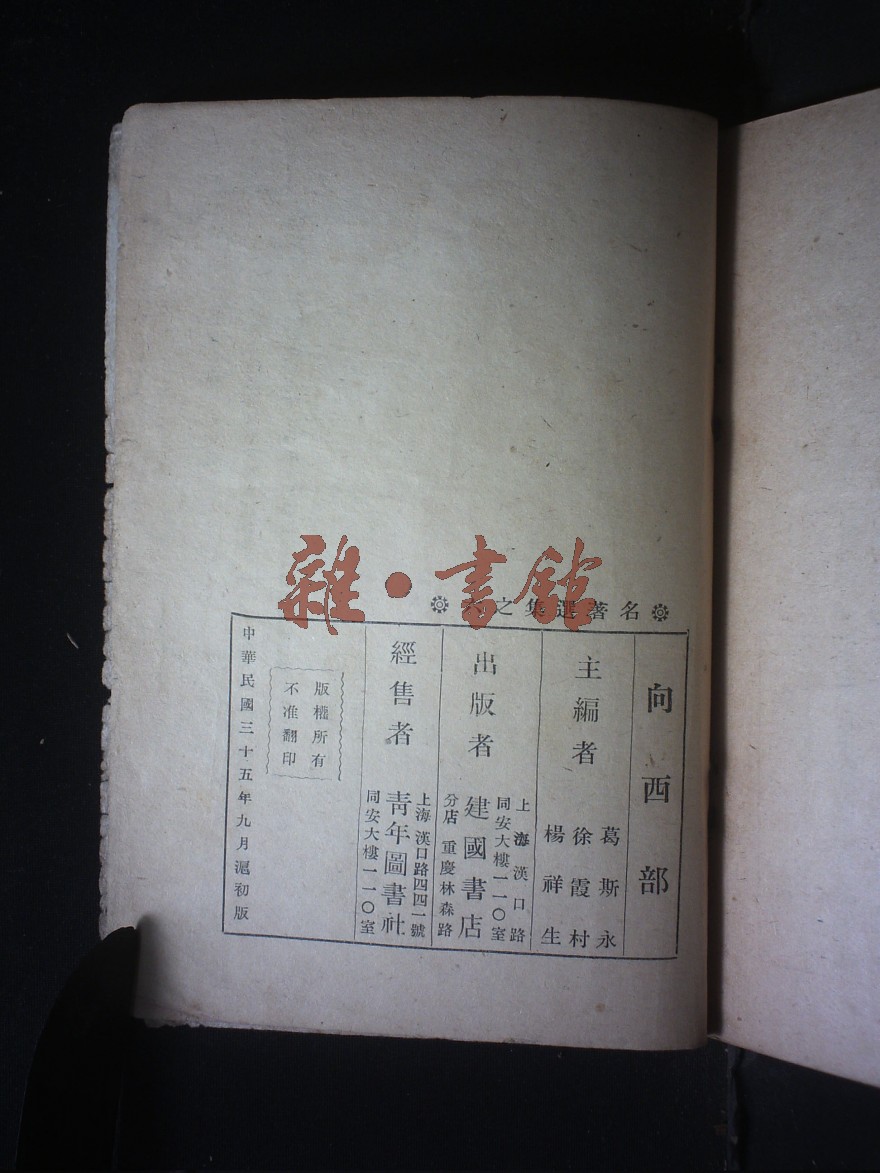 雜·書館
名著選集之
向西部
主編者
葛斯永
徐霞村
楊祥生
出版者
上海漢口路
同安大樓一一〇室
建國書店
分店 重慶林森路
經售者
上海漢口路四四一號
青年圖書社
同安大樓一一〇室
版權所有
不准翻印
中華民國三十五年九月滬初版